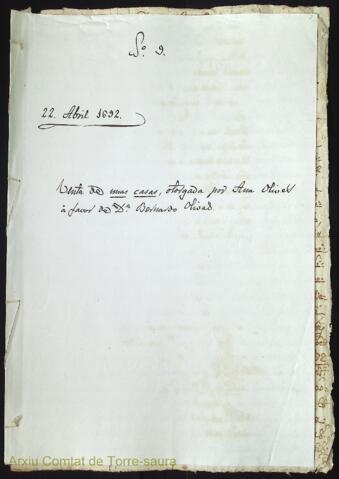 Nº 9.
22. Abril 1692.
Venta de unas casas, otorgada por Ana Olives
à favor de Dn. Bernardo Olives.
Arxiu Comtat de Torre-saura